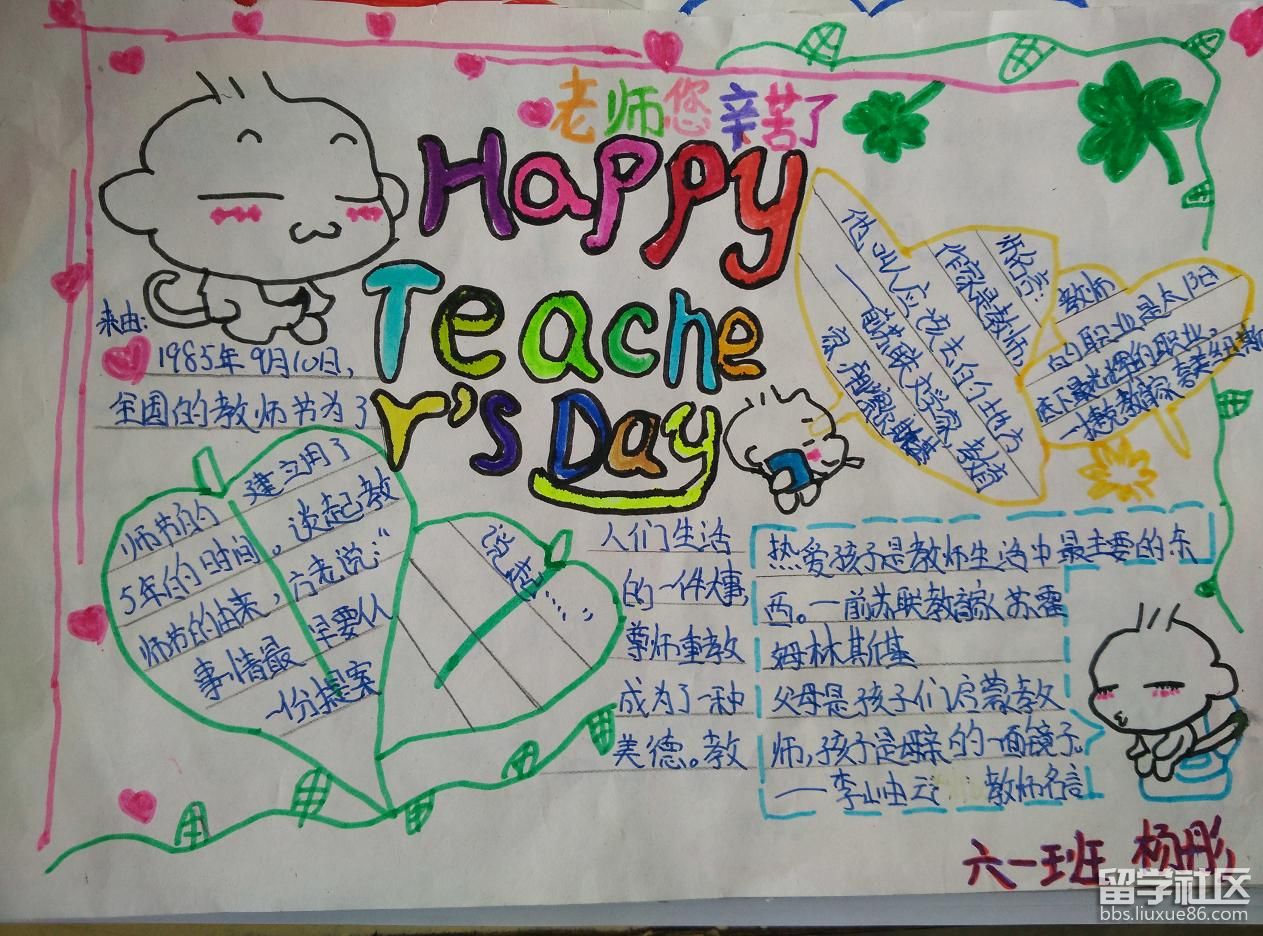 老师您辛苦了
Happy
Teache
r's Day
来由:
1985年9月10日，
全国的教师节为了
人们生活
的一件大事,
尊师重教
成为了一种
美德。教
师节的建立用了
5年的时间，谈起教
师节的由来，方老说:“
事情最早要从
一份提案
说起……”
作家是教师,
他叫人应该去的地方
——前苏联文学家 教育
教师
的职业是太阳
底下最光辉的职业。
热爱孩子是教师生活中最主要的东
西。—前苏联教育家苏霍
姆林斯基
父母是孩子们启蒙教
师,孩子是母亲的一面镜子.
教师名言
六一班 杨彤
留学社区
bbs.liuxue86.com